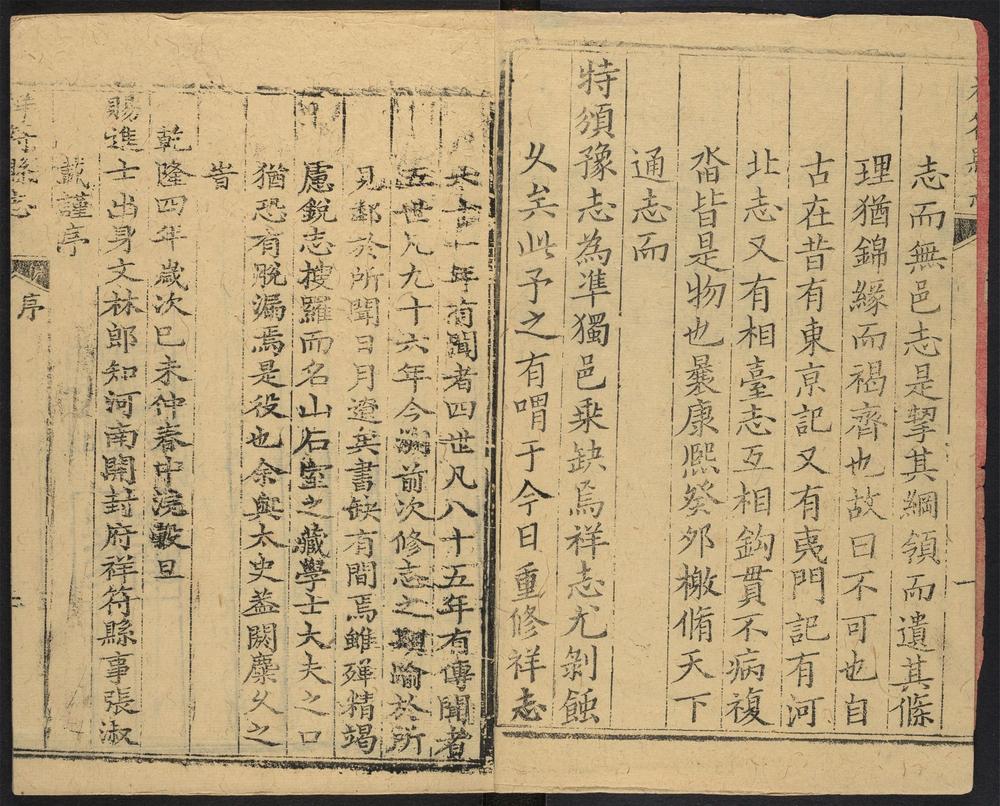 志而無邑志是挈其綱領而遺其條
理猶錦緣而褐齊也故曰不可也自
古在昔有東京記又有夷門記有河
北志又有相臺志互相鈎貫不病複
沓皆是物也曩康熙癸夘檄脩天下
通志而
特須豫志為準獨邑乗缺焉祥志尤剝蝕
乆矣此予之有喟于今日重修祥志
十一年有聞者四世凡八十五年有傳聞者
五世凡九十六年今溯前次修志之期喻於所
見鄰於所聞日月遼矣書缺有間焉雖殫精竭
慮銳志搜羅而名山石室之藏學士大夫之口
猶恐有脫漏焉是役也余與太史葢闕麋乆之
旹
乾隆四年歲次巳未仲春中浣穀旦
賜進士出身文林郎知河南開封府祥符縣事張淑
載謹序
祥符縣志
序